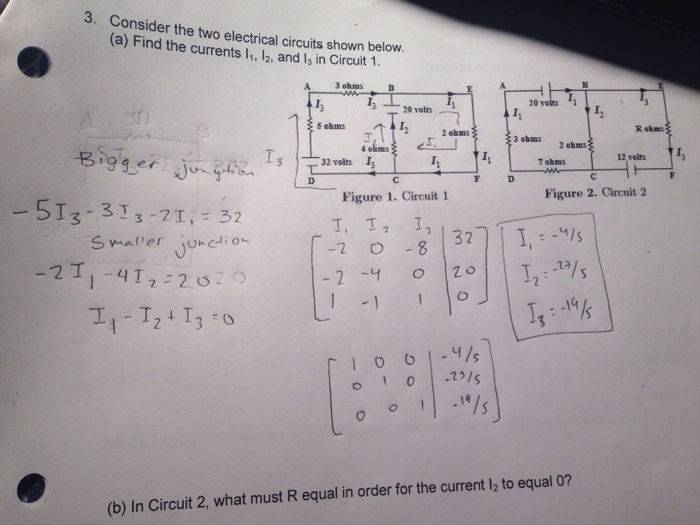 3. Consider the two electrical circuits shown below.
(a) Find the currents I₁, I₂, and I₃ in Circuit 1.
A 3 ohms B E
I₃ I₃ 20 volts I₁
5 ohms I₂ 2 ohms
4 ohms
32 volts I₃ I₁ I₁
D C F
Figure 1. Circuit 1
A B E
20 volts I₁ I₃
I₁ I₂
3 ohms 2 ohms R ohms
7 ohms 12 volts I₃
D C F
Figure 2. Circuit 2
Bigger junction I₃
-5I₃-3I₃-2I₁ = 32
Smaller junction
-2I₁-4I₂=20
I₁-I₂+I₃=0
I₁ I₂ I₃
-2 0 -8 | 32
-2 -4 0 | 20
1 -1 1 | 0
I₁ = -4/5
I₂ = -23/5
I₃ = -19/5
1 0 0 | -4/5
0 1 0 | -23/5
0 0 1 | -19/5
(b) In Circuit 2, what must R equal in order for the current I₂ to equal 0?